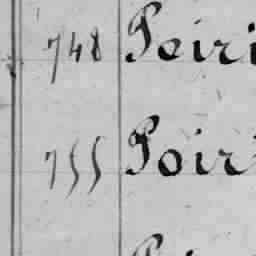 748 Poiri
755 Poir